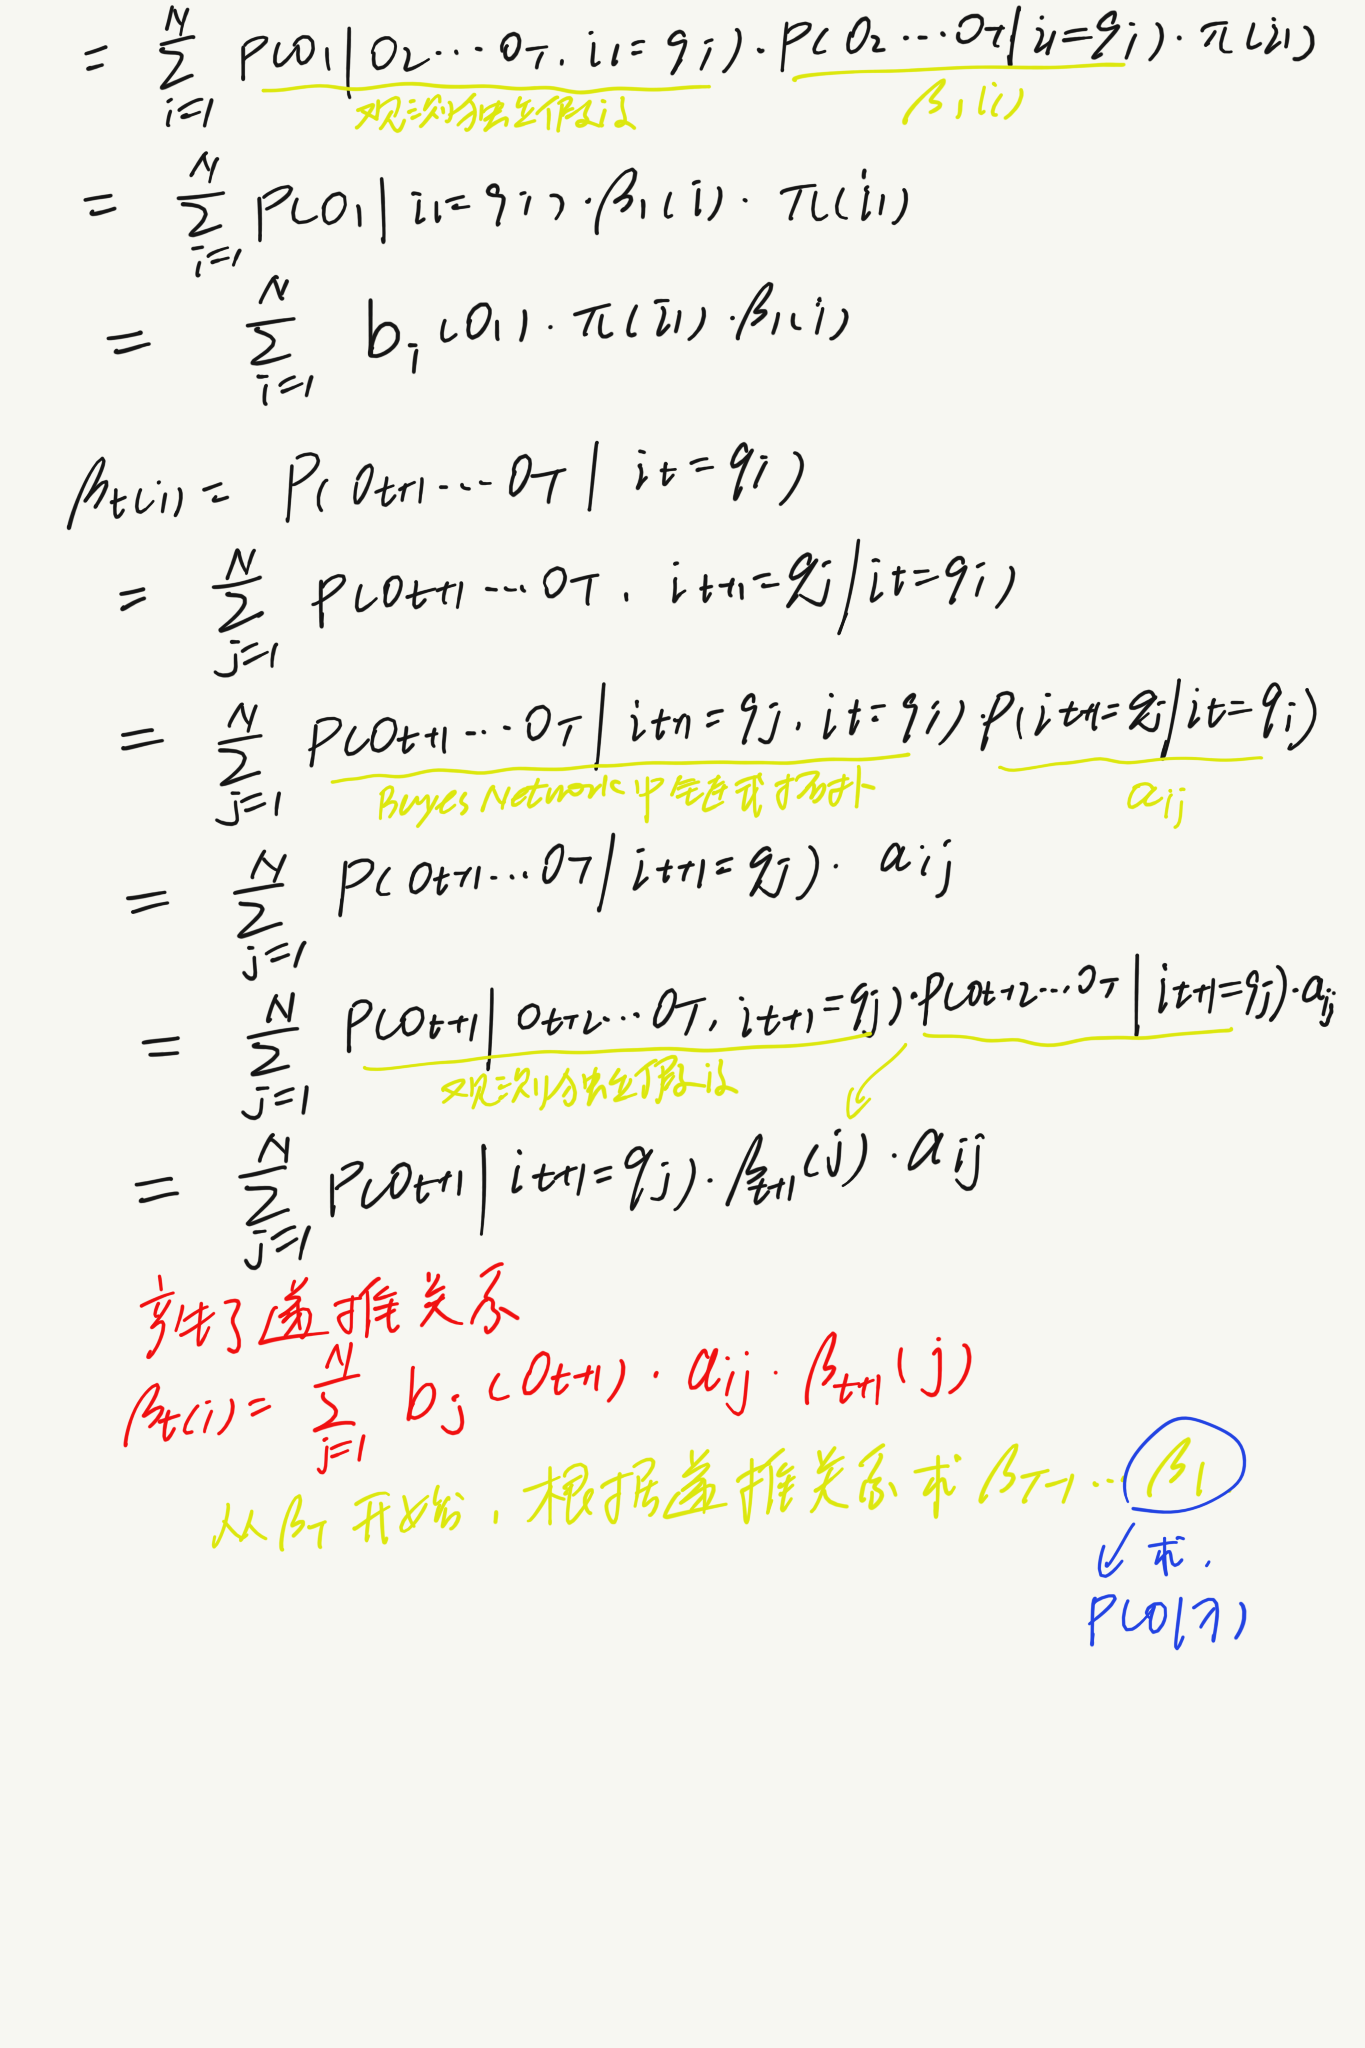 = Σ_{i=1}^{N} P(O₁|O₂⋯O_T, i₁=q_i)·P(O₂⋯O_T|i₁=q_i)·π(i₁)
观测独立假设 β₁(i)
= Σ_{i=1}^{N} P(O₁|i₁=q_i)·β₁(i)·π(i₁)
= Σ_{i=1}^{N} b_i(O₁)·π(i₁)·β₁(i)
β_t(i) = P(O_{t+1}⋯O_T | i_t=q_i)
= Σ_{j=1}^{N} P(O_{t+1}⋯O_T, i_{t+1}=q_j | i_t=q_i)
= Σ_{j=1}^{N} P(O_{t+1}⋯O_T | i_{t+1}=q_j, i_t=q_i)·P(i_{t+1}=q_j | i_t=q_i)
Bayes Network 中链式 a_{ij}
= Σ_{j=1}^{N} P(O_{t+1}⋯O_T | i_{t+1}=q_j)·a_{ij}
= Σ_{j=1}^{N} P(O_{t+1} | O_{t+2}⋯O_T, i_{t+1}=q_j)·P(O_{t+2}⋯O_T | i_{t+1}=q_j)·a_{ij}
观测独立假设
= Σ_{j=1}^{N} P(O_{t+1} | i_{t+1}=q_j)·β_{t+1}(j)·a_{ij}
产生了递推关系
β_t(i) = Σ_{j=1}^{N} b_j(O_{t+1})·a_{ij}·β_{t+1}(j)
从β_T开始, 根据递推关系求β_{T-1}⋯β₁
求.
P(O|λ)